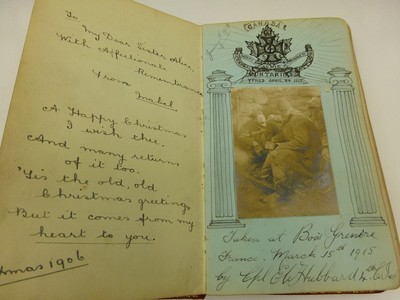 To,
My Dear Sister Alice,
With Affectionate
Remembrance
From
Mabel
A Happy Christmas
I wish thee.
And many returns
of it too.
'Tis the old, old
Christmas greeting,
But it comes from my
heart to you.
Xmas 1906
CANADA
ONTARIO
YPRES APRIL
Taken at Bois Grenier
France. March 15th 1915
by Cpl E W Hubbard